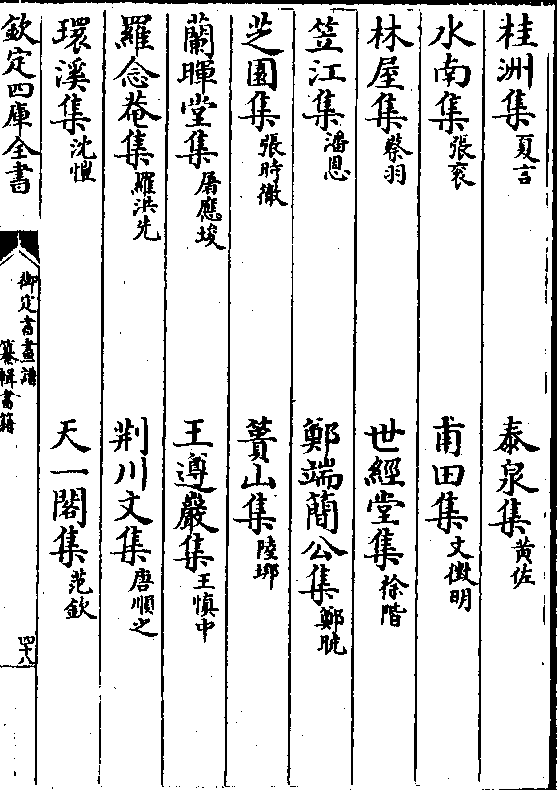 桂洲集夏言 泰泉集黄佐
水南集張衮 甫田集文徴明
林屋集蔡羽 世經堂集徐階
笠江集潘恩 鄭端簡公集鄭曉
芝園集張時徹 蕢山集陸埏
蘭暉堂集屠應埈 王遵巖集王慎中
羅念菴集羅洪先 荆川文集唐順之
環溪集沈愷 天一閣集范欽
欽定四庫全書 御定書畫譜 纂輯書籍 四十八